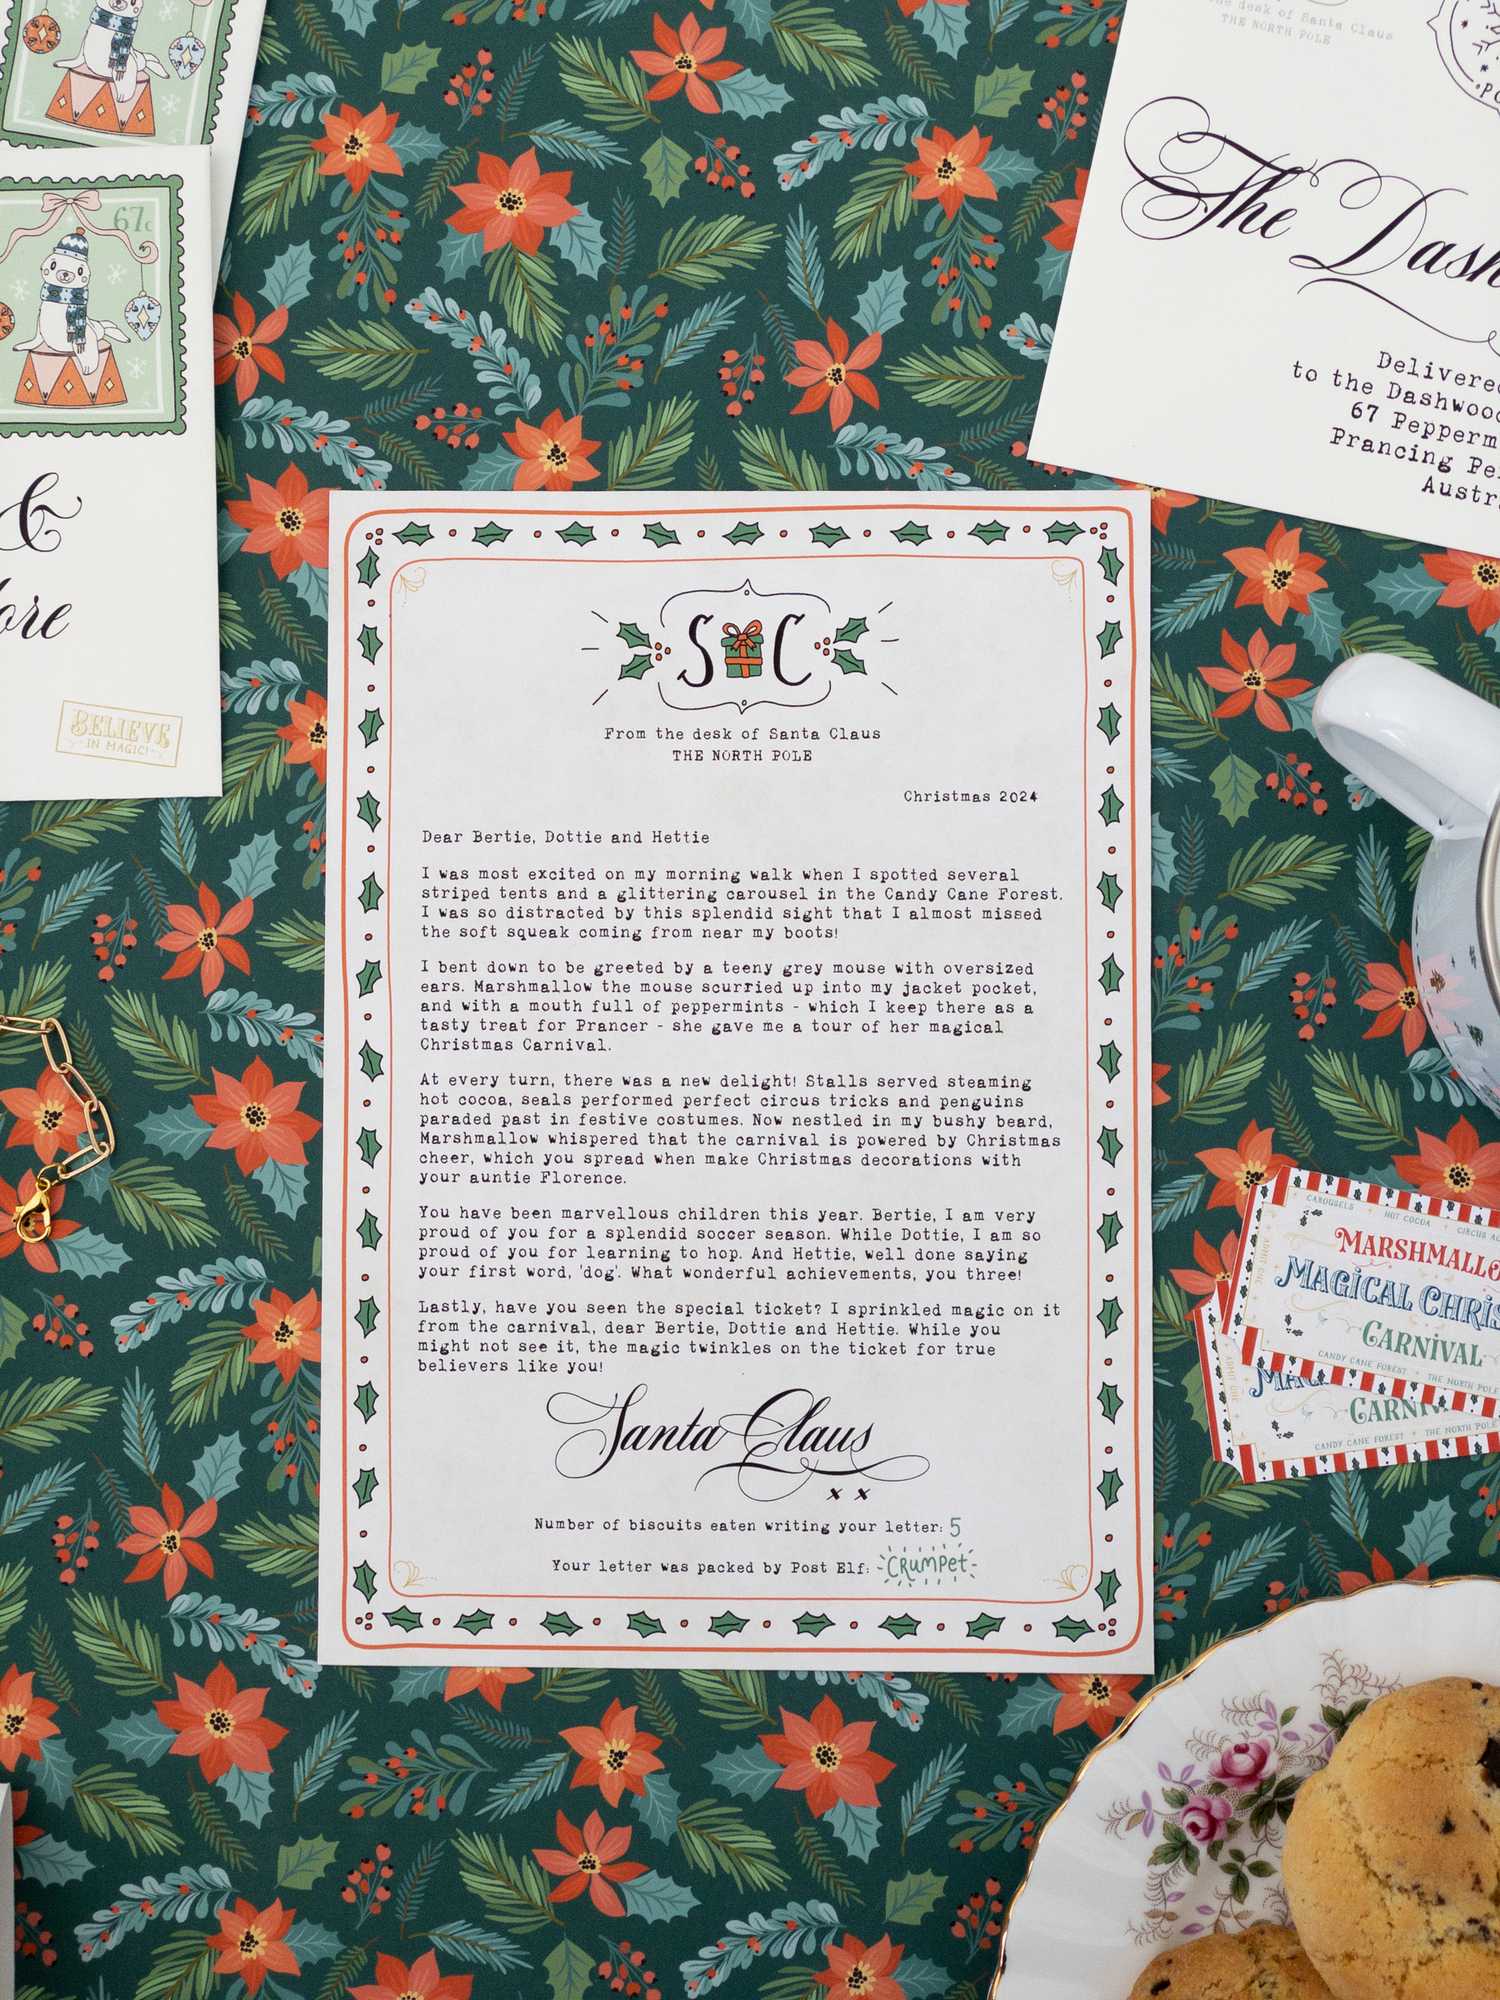 67c
&
BELIEVE
IN MAGIC!
the desk of Santa Claus
THE NORTH POLE
The
Delivered
to the Dashwood
67
Prancing
S C
From the desk of Santa Claus
THE NORTH POLE
Christmas 2024
Dear Bertie, Dottie and Hettie
I was most excited on my morning walk when I spotted several
striped tents and a glittering carousel in the Candy Cane Forest.
I was so distracted by this splendid sight that I almost missed
the soft squeak coming from near my boots!
I bent down to be greeted by a teeny grey mouse with oversized
ears. Marshmallow the mouse scurried up into my jacket pocket,
and with a mouth full of peppermints - which I keep there as a
tasty treat for Prancer - she gave me a tour of her magical
Christmas Carnival.
At every turn, there was a new delight! Stalls served steaming
hot cocoa, seals performed perfect circus tricks and penguins
paraded past in festive costumes. Now nestled in my bushy beard,
Marshmallow whispered that the carnival is powered by Christmas
cheer, which you spread when make Christmas decorations with
your auntie Florence.
You have been marvellous children this year. Bertie, I am very
proud of you for a splendid soccer season. While Dottie, I am so
proud of you for learning to hop. And Hettie, well done saying
your first word, 'dog'. What wonderful achievements, you three!
Lastly, have you seen the special ticket? I sprinkled magic on it
from the carnival, dear Bertie, Dottie and Hettie. While you
might not see it, the magic twinkles on the ticket for true
believers like you!
Santa Claus
x x
Number of biscuits eaten writing your letter: 5
Your letter was packed by Post Elf: CRUMPET
CAROUSELS HOT COCOA CIRCUS
ADMIT ONE
MARSHMALLO
MAGICAL CHRIS
CARNIVAL
CANDY CANE FOREST THE NORTH POLE
CANDY CANE FOREST THE NORTH POLE